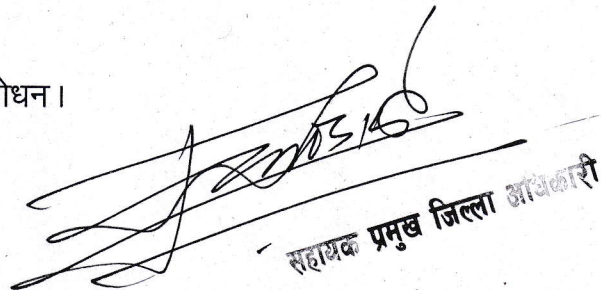 ोधन।
सहायक प्रमुख जिल्ला अधिकारी